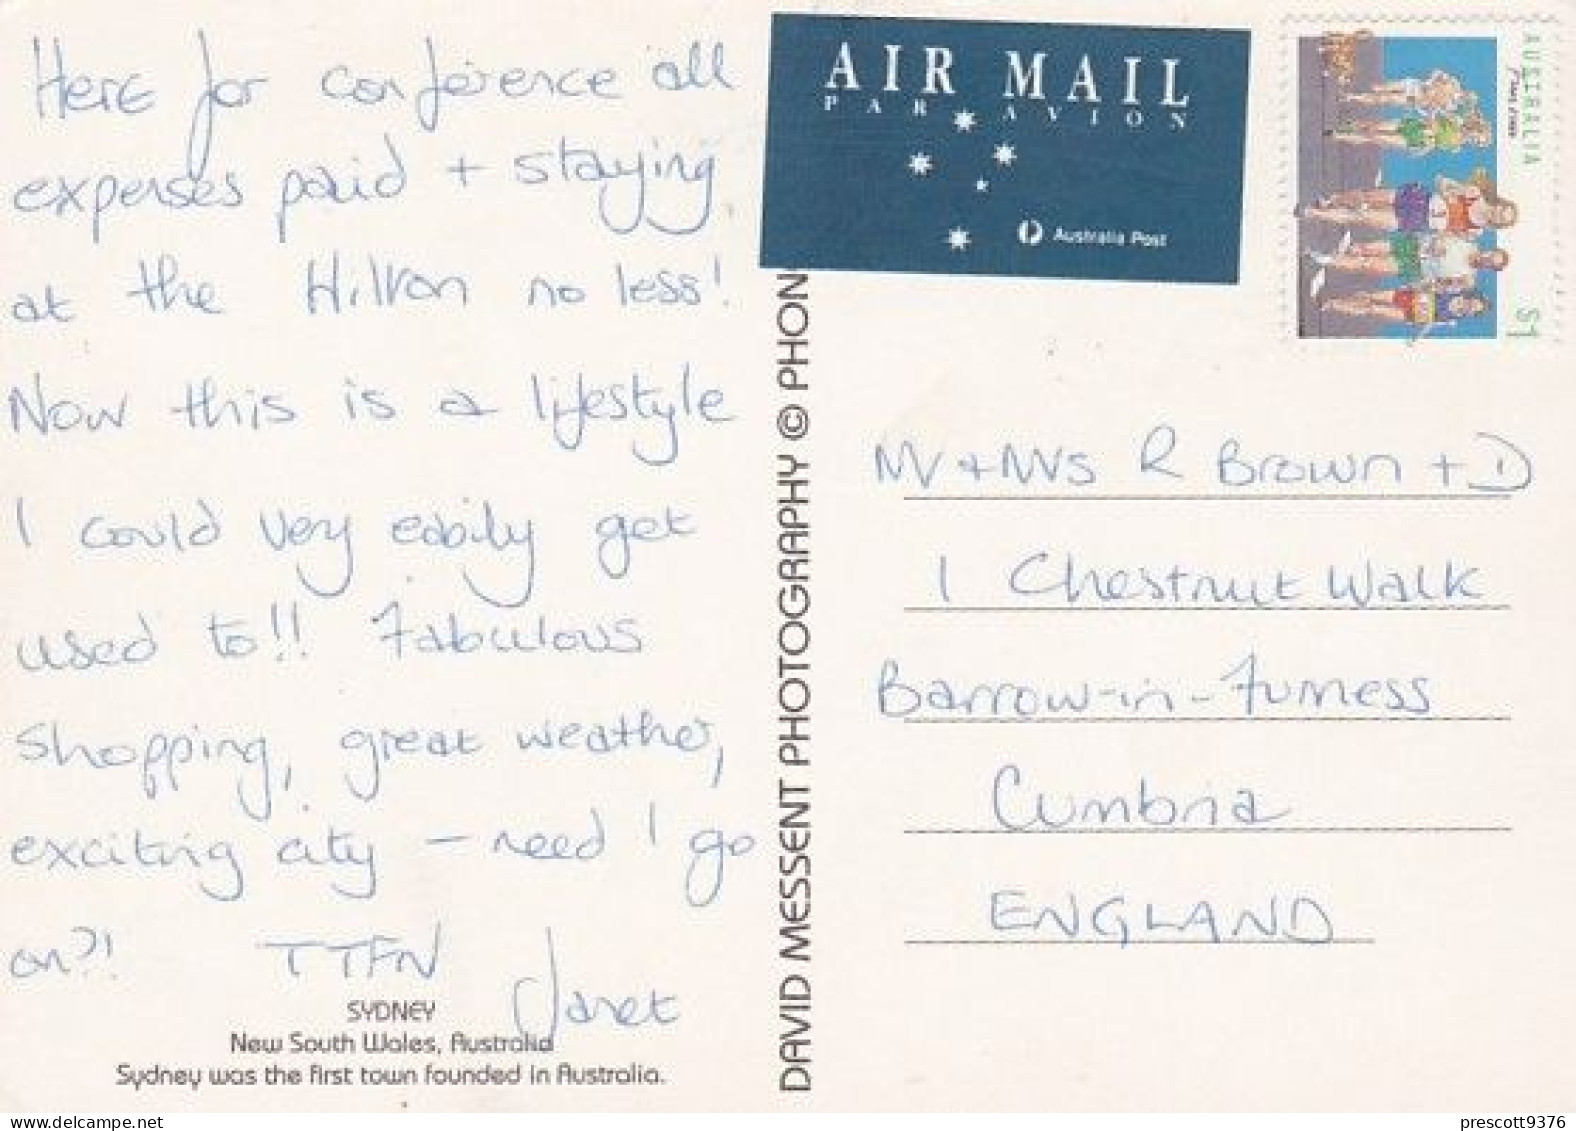 Here for conference all
expenses paid + staying
at the Hilton no less!
Now this is a lifestyle
I could very easily get
used to!! Fabulous
shopping, great weather,
exciting city – need I go
on?! TTFN Janet
SYDNEY
New South Wales, Australia
Sydney was the first town founded in Australia.
DAVID MESSENT PHOTOGRAPHY © PHON
AIR MAIL
PAR AVION
Australia Post
AUSTRALIA
$1
Mr + Mrs R Brown + D
1 Chestnut Walk
Barrow-in-Furness
Cumbria
ENGLAND
prescott9376